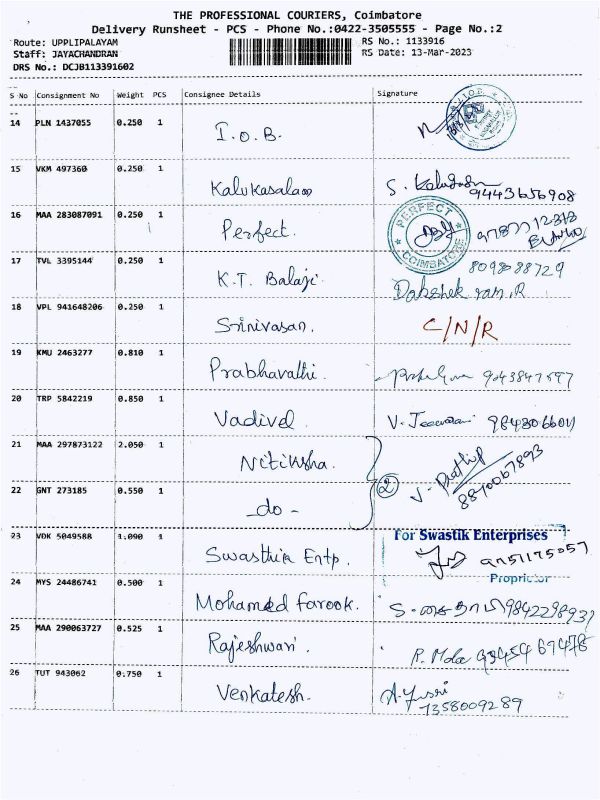 THE PROFESSIONAL COURIERS, Coimbatore
Delivery Runsheet - PCS - Phone No.:0422-3505555 - Page No.:2
Route: UPPLIPALAYAM
RS No.: 1133916
Staff: JAYACHANDRAN
RS Date: 13-Mar-2023
DRS No.: DCJB113391602
S No Consignment No Weight PCS Consignee Details Signature
14 PLN 1437055 0.250 1 I.O.B.
15 VKM 497360 0.250 1 Kalukasalam S.
9443656908
16 MAA 283087091 0.250 1 Perfect.
PERFECT
COIMBATORE
17 TVL 3395144 0.250 1 K.T. Balaji 8098088729
18 VPL 941648206 0.250 1 Srinivasan. C/N/R
19 KMU 2463277 0.810 1 Prabhavathi.
20 TRP 5842219 0.850 1 Vadivel V.
21 MAA 297873122 2.050 1 Nitiksha.
2
J. Prathip
8870067893
22 GNT 273185 0.550 1 -do-
23 VDK 5049588 1.090 1 Swasthik Entp.
For Swastik Enterprises
Proprietor
24 MYS 24486741 0.500 1 Mohamed farook. S.
25 MAA 290063727 0.525 1 Rajeshwari.
26 TUT 943062 0.750 1 Venkatesh.
7358009289